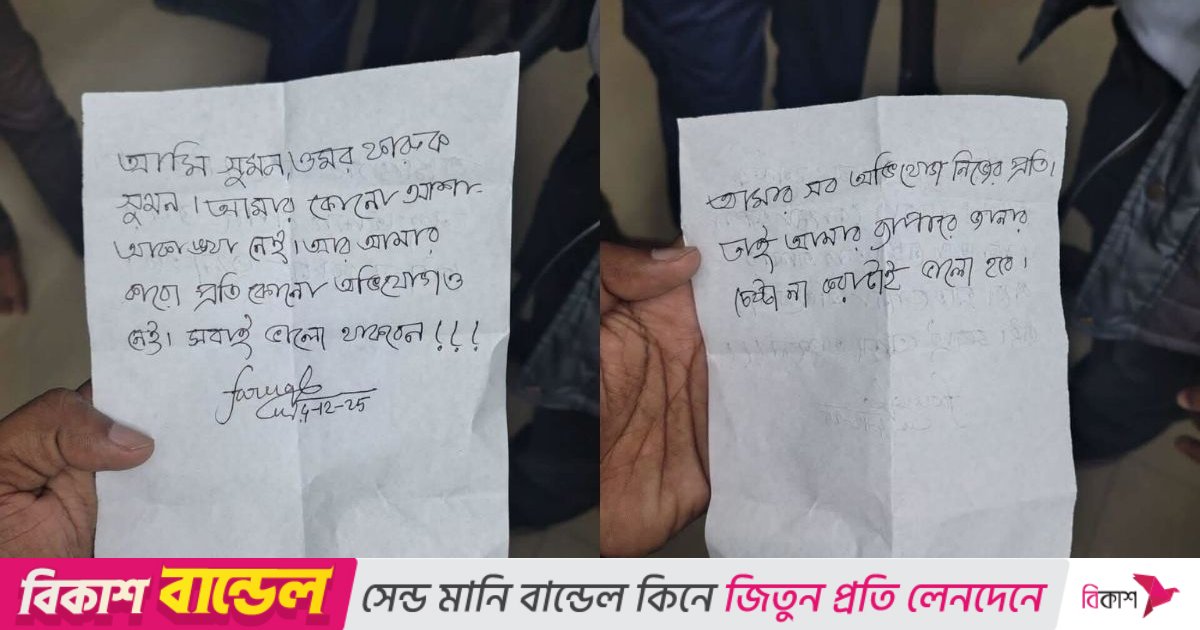 আমি সুমন, ওমর ফারুক
সুমন। আমার কোনো আশা-
আকাঙ্খা নেই। আর আমার
কারো প্রতি কোনো অভিযোগও
নেই। সবাই ভালো থাকবেন !!!
faruqk
14-12-25
আমার সব অভিযোগ নিজের প্রতি।
তাই আমার ব্যাপারে জানার
চেষ্টা না করাটাই ভালো হবে।
বিকাশ বান্ডেল সেন্ড মানি বান্ডেল কিনে জিতুন প্রতি লেনদেনে বিকাশ